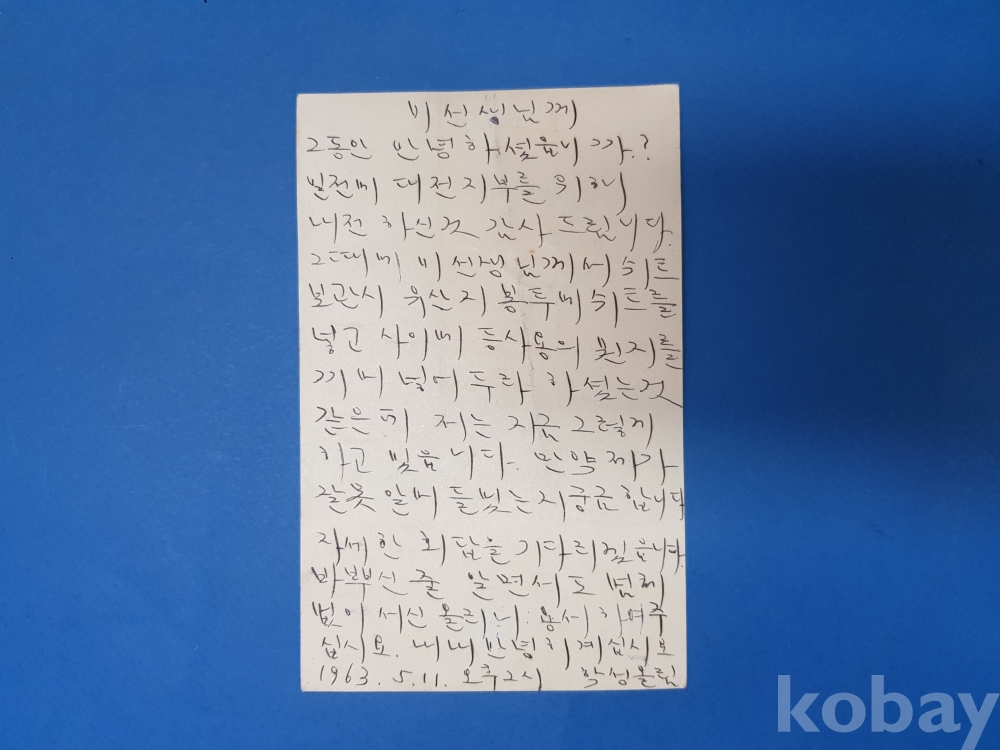 이 선생님께
그동안 안녕 하셨읍니까.?
일전에 대전지부를 위해
내전 하신것 감사 드립니다.
그때에 이 선생님께서 쉬트
보관시 유산지 봉투에 쉬트를
넣고 사이에 등사용의 원지를
끼어 넣어 두라 하셨는것
같은데 저는 지금 그렇게
하고 있읍니다. 만약 제가
잘못 알어 들었는지 궁금합니다
자세한 회답을 기다리겠읍니다.
바쁘신 줄 알면서도 염치
없이 서신 올리니 용서하여주
십시요. 내내 안녕히 계십시요
1963. 5. 11. 오후2시 학성올림
kobay